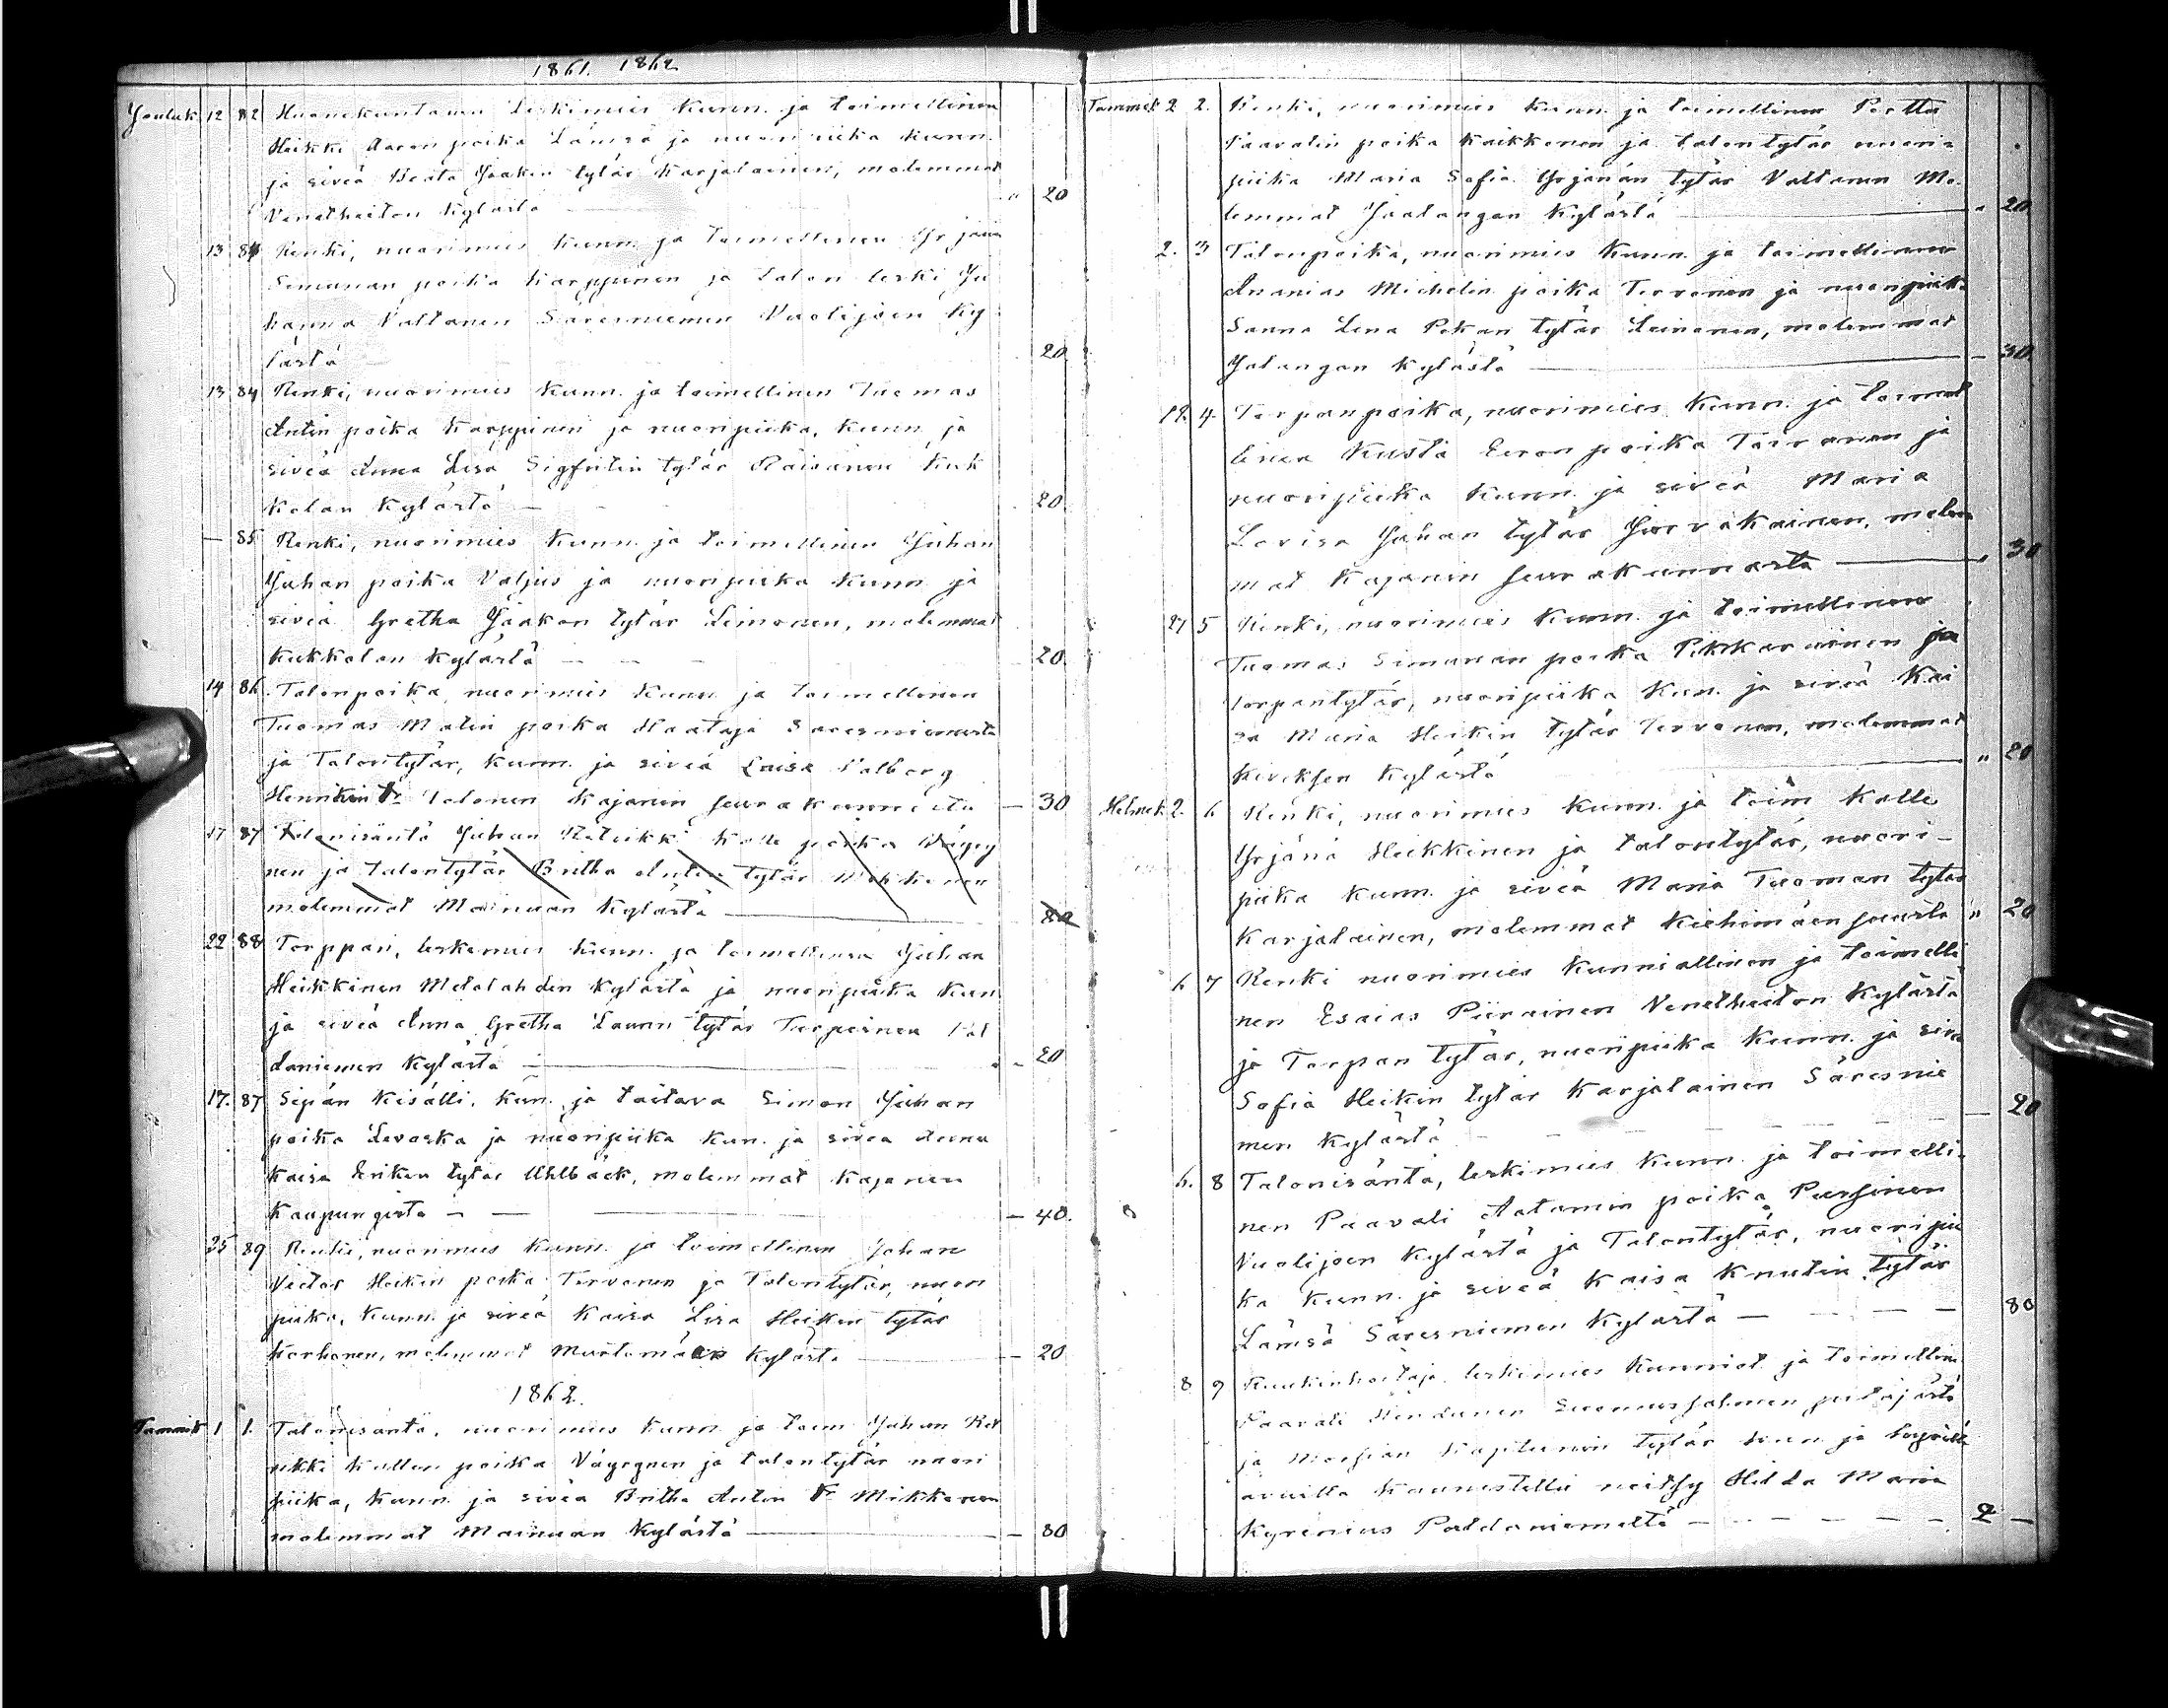 1861. 1862
Jouluk. 12 82 Huonekuntanen Leskimies kunn. ja toimellinen
Heikki Aaron poika Lämsä ja nuori piika kunn.
ja siveä Beata Jaakon tytär Karjalainen, molemmat
Venetheiton kylästä " 20
13 84 Renki, nuorimies kunn. ja toimellinen Yrjänä
Simunan poika Karppinen ja talon leski Ju
hanna Valtanen Säresniemen Vuolijoen ky
lästä 20
13 84 Renki, nuorimies kunn. ja toimellinen Tuomas
Antin poika Karppinen ja nuoripiika, kunn. ja
siveä Anna Lisa Sigfritin tytär Räisänen Kuk
kolan kylästä 20
— 85 Renki, nuorimies kunn. ja toimellinen Juhan
Juhan poika Valjus ja nuoripiika kunn. ja
siveä Gretha Jaakon tytär Leinonen, molemmat
Kukkolan kylästä — — — 20
14 86. Talonpoika, nuorimies kunn. ja toimellinen
Tuomas Matin poika Haataja Säresniemestä
ja Talontytär, kunn. ja siveä Lovisa Valborg
Henrikin Tr. Tolonen Kajanin seurakunnasta — 30
17 87 Talonisäntä Juhan Retrikki Kalle poika Väyry
nen ja talontytär Britha Antin tytär Mikkonen
molemmat Mainuan kylästä — 80
22 88 Torppari, leskimies kunn. ja toimellinen Juhan
Heikkinen Metelahden kylästä ja nuoripiika kun
ja siveä Anna Gretha Laurin tytär Turpeinen Pal
daniemen kylästä — 20
17. 87 Sepän Kisälli, kun. ja taitava Simon Juhan
poika Levoska ja nuoripiika kun. ja siveä Anna
Kaisa Eriken tytär Uhlbäck, molemmat Kajanin
Kaupungista — — 40.
25 89 Renki, nuorimies kunn. ja toimellinen Johan
Victor Heikin poika Tervonen ja Talontytär, nuori
piika, kunn. ja siveä Kaisa Lisa Heikin tytär
Korhonen, molemmat Mustamäen kylästä — 20
1862.
Tammik 1 1. Talonisäntä, nuorimies kunn. ja toim Juhan Ret
rikki Kallen poika Väyrynen ja talontytär nuori
piika, kunn. ja siveä Britha Antin Tr Mikkonen
molemmat Mainuan kylästä — 80
Tammik 2 2. Renki, nuorimies kunn. ja toimellinen Perttu
Paavalin poika Kaikkonen ja talontytär nuori=
piika Maria Sofia Yrjänän tytär Valtanen Mo
lemmat Jaalangan kylästä " 20
2. 3 Talonpoika, nuorimies kunn. ja toimellinen
Ananias Michelin poika Tervonen ja nuoripiika
Sanna Lena Pekan tytär Leinonen, molemmat
Jalangan kylästä — 30
19. 4. Torpanpoika, nuorimies kunn. ja toimel
linen Kusta Eeron poika Toivanen ja
nuoripiika kunn. ja siveä Maria
Lovisa Juhan tytär Juvakainen, molem
mat Kajanin seurakunnasta " 30
27 5 Renki, nuorimies kunn. ja toimellinen
Tuomas Simunan poika Pikkarainen ja
torpantytär, nuoripiika kun. ja siveä Kai
sa Maria Heikin tytär Tervonen, molemmat
kylästä " 20
Helmik. 2. 6 Renki, nuorimies kunn. ja toim Kalle
Yrjänä Heikkinen ja talontytär, nuori-
piika kunn. ja siveä Maria Tuoman tytär
Karjalainen, molemmat Kiehimäen suusta " 20
6 7 Renki nuorimies kunniallinen ja toimelli
nen Esaias Piirainen Venetheiton kylästä
ja Torpan tytär, nuoripiika kunn. ja siveä
Sofia Heikin tytär Karjalainen Säresnie
men kylästä — 20
6. 8 Talonisäntä, leskimies kunn. ja toimelli-
nen Paavali Aatamin poika Pursinen
Vuolijoen kylästä ja Talontytär, nuoripii
ka kunn. ja siveä Kaisa Knutin tytär
Lämsä Säresniemen kylästä — 80
8 9 Ruukinhoitaja leskimies kunniat. ja toimellinen
Paavali Suomussalmen pitäjästä
ja Kapteenin tytär kun ja
avuilla kaunistettu neitsy Hilda Maria
Kyrenius Paldaniemeltä — 2 —